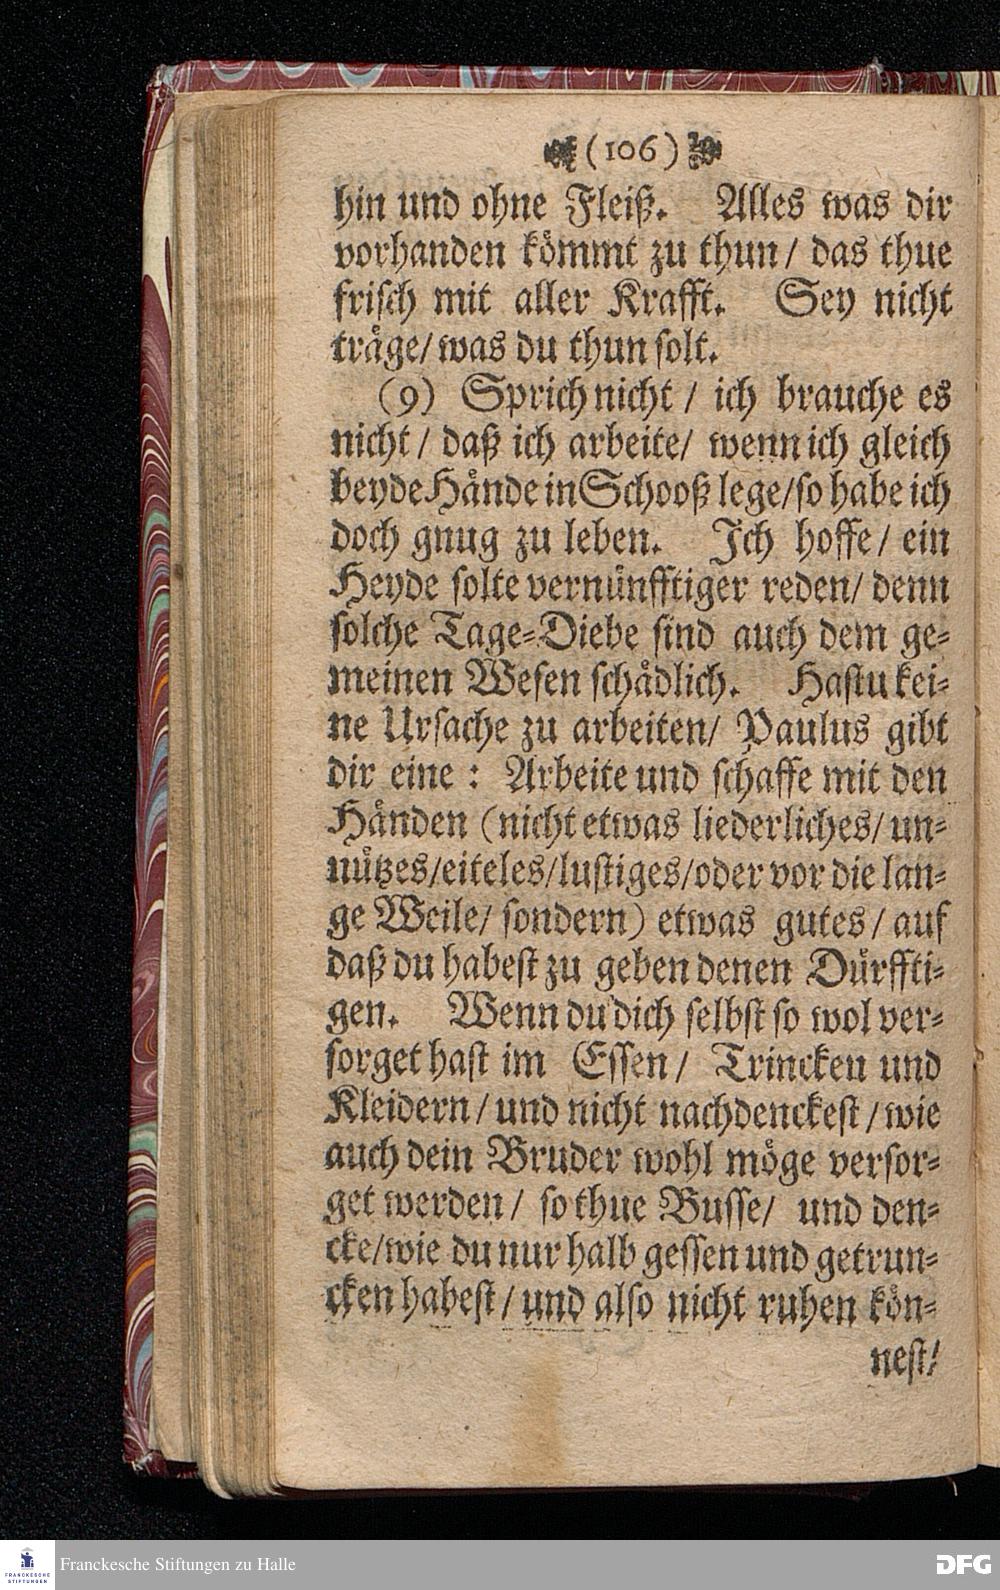 (106)
hin und ohne Fleiß. Alles was dir
vorhanden kömmt zu thun/ das thue
frisch mit aller Krafft. Sey nicht
träge/ was du thun solt.
(9) Sprich nicht / ich brauche es
nicht / daß ich arbeite/ wenn ich gleich
beyde Hände in Schooß lege/so habe ich
doch gnug zu leben. Ich hoffe/ ein
Heyde solte vernünfftiger reden/ denn
solche Tage-Diebe sind auch dem ge-
meinen Wesen schädlich. Hastu kei-
ne Ursache zu arbeiten/ Paulus gibt
dir eine : Arbeite und schaffe mit den
Händen (nicht etwas liederliches/ un-
nützes/eiteles/lustiges/oder vor die lan-
ge Weile/ sondern) etwas gutes / auf
daß du habest zu geben denen Dürffti-
gen. Wenn du dich selbst so wol ver-
sorget hast im Essen / Trincken und
Kleidern / und nicht nachdenckest / wie
auch dein Bruder wohl möge versor-
get werden / so thue Busse/ und den-
cke/wie du nur halb gessen und getrun-
cken habest / und also nicht ruhen kön-
nest/
FRANCKESCHE STIFTUNGEN
Franckesche Stiftungen zu Halle
DFG